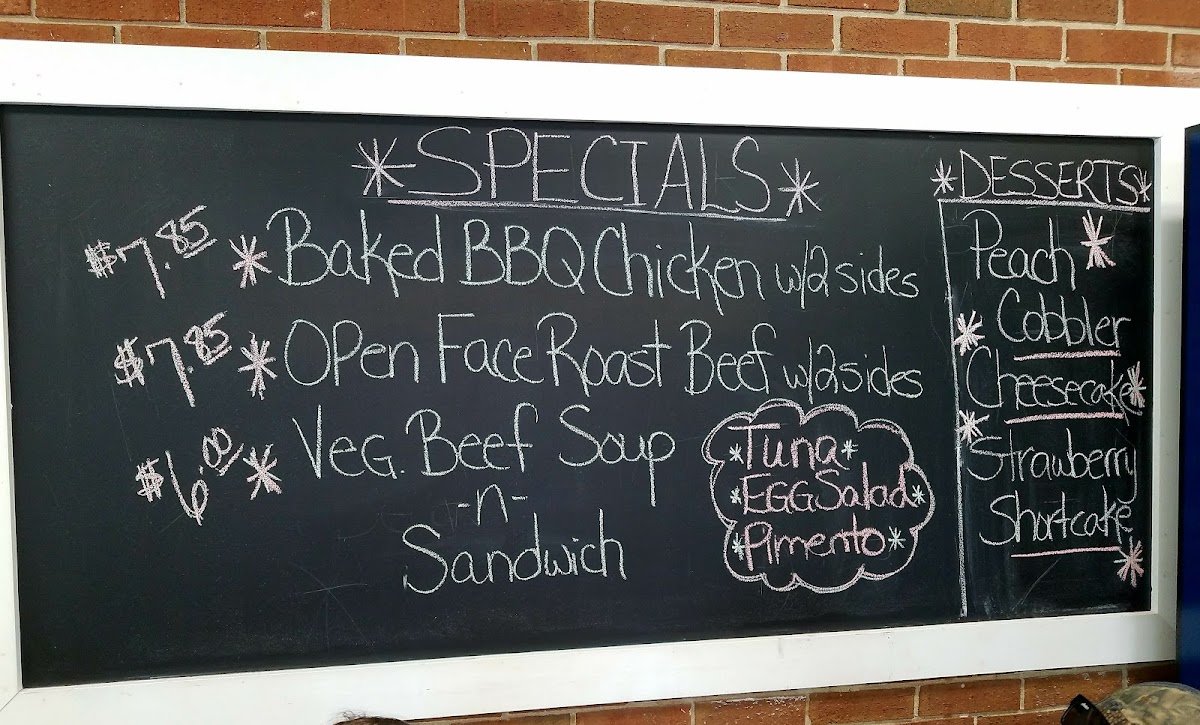 *SPECIALS*
$7.85 *Baked BBQ Chicken w/2 sides
$7.85 *Open Face Roast Beef w/2 sides
$6.00 *Veg. Beef Soup
-n-
Sandwich
*Tuna*
*EGG Salad*
*Pimento*
*DESSERTS*
Peach*
Cobbler
*Cheesecake*
*Strawberry
Shortcake*